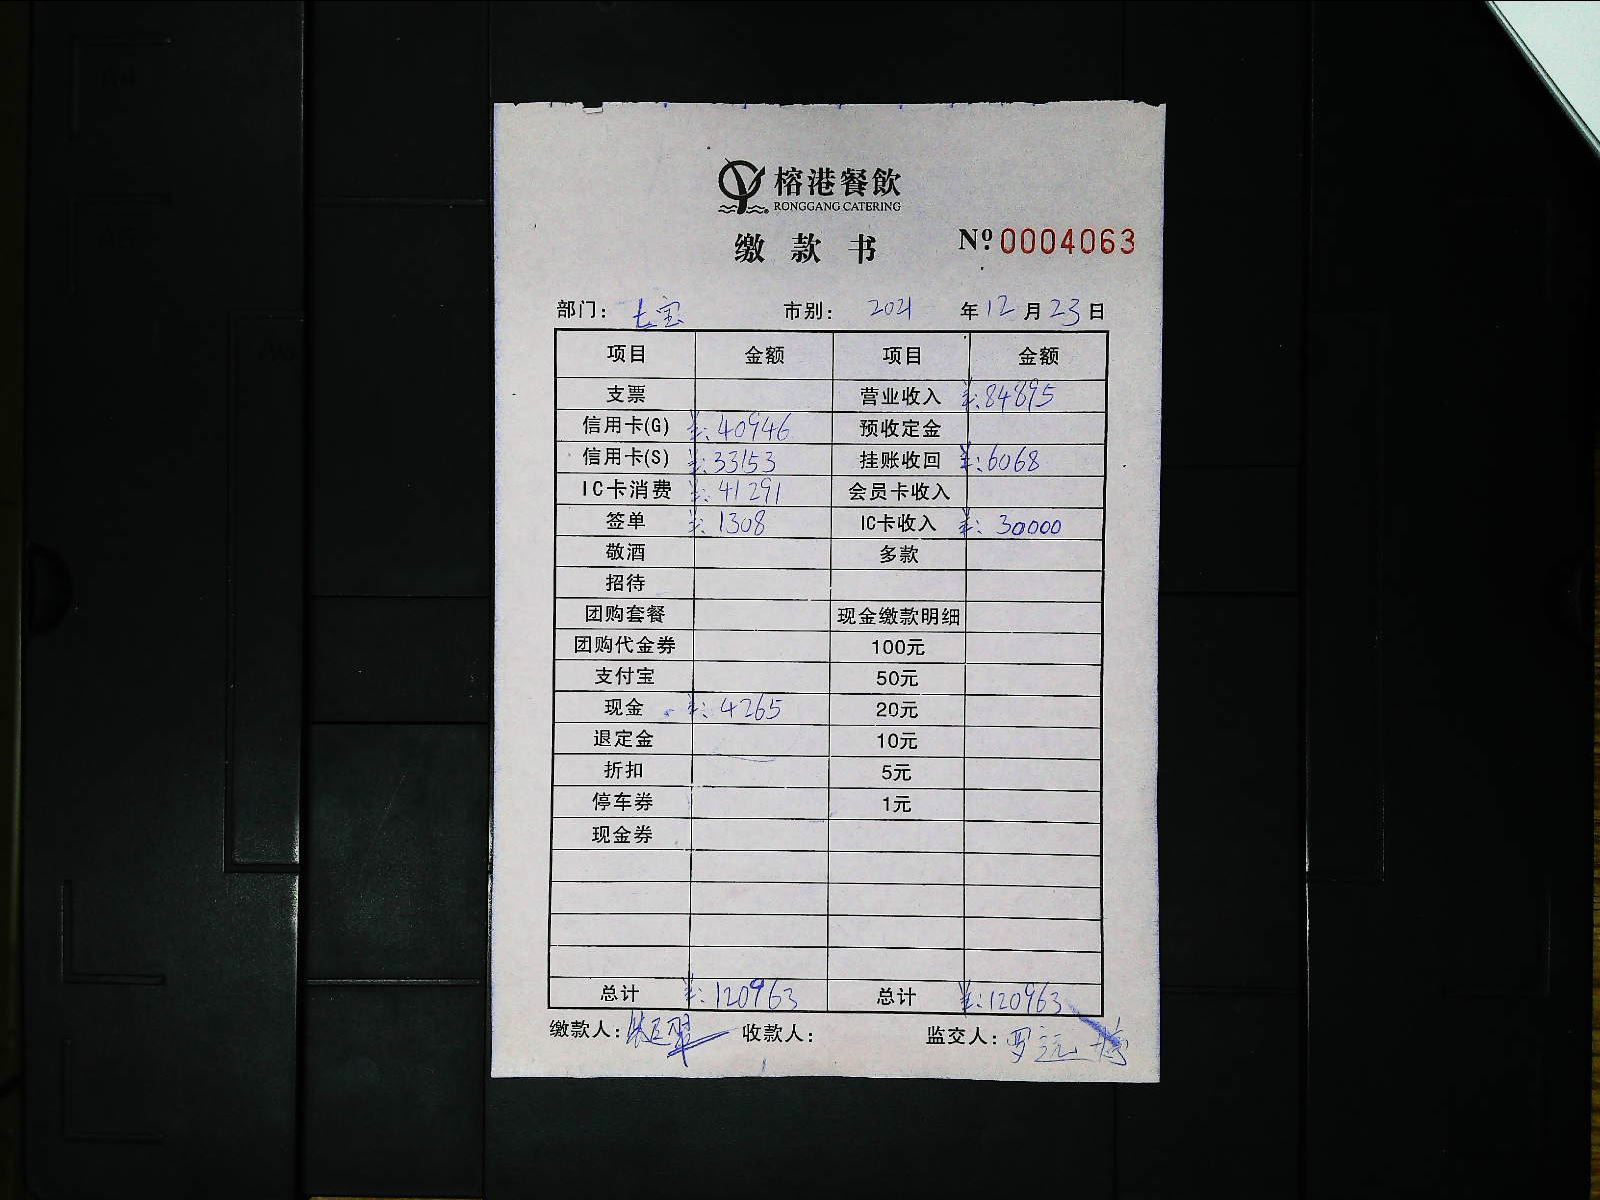 榕港餐飲
RONGGANG CATERING
缴款书 Nº 0004063
部门: 七宝 市别: 2021 年 12 月 23 日
项目 金额 项目 金额
支票 营业收入 ¥:84895
信用卡(G) ¥:40946 预收定金
信用卡(S) ¥:33153 挂账收回 ¥:6068
IC卡消费 ¥:41291 会员卡收入
签单 ¥:1308 IC卡收入 ¥:30000
敬酒 多款
招待
团购套餐 现金缴款明细
团购代金券 100元
支付宝 50元
现金 ¥:4265 20元
退定金 10元
折扣 5元
停车券 1元
现金券
总计 ¥:120963 总计 ¥:120963
缴款人: 收款人: 监交人: 罗